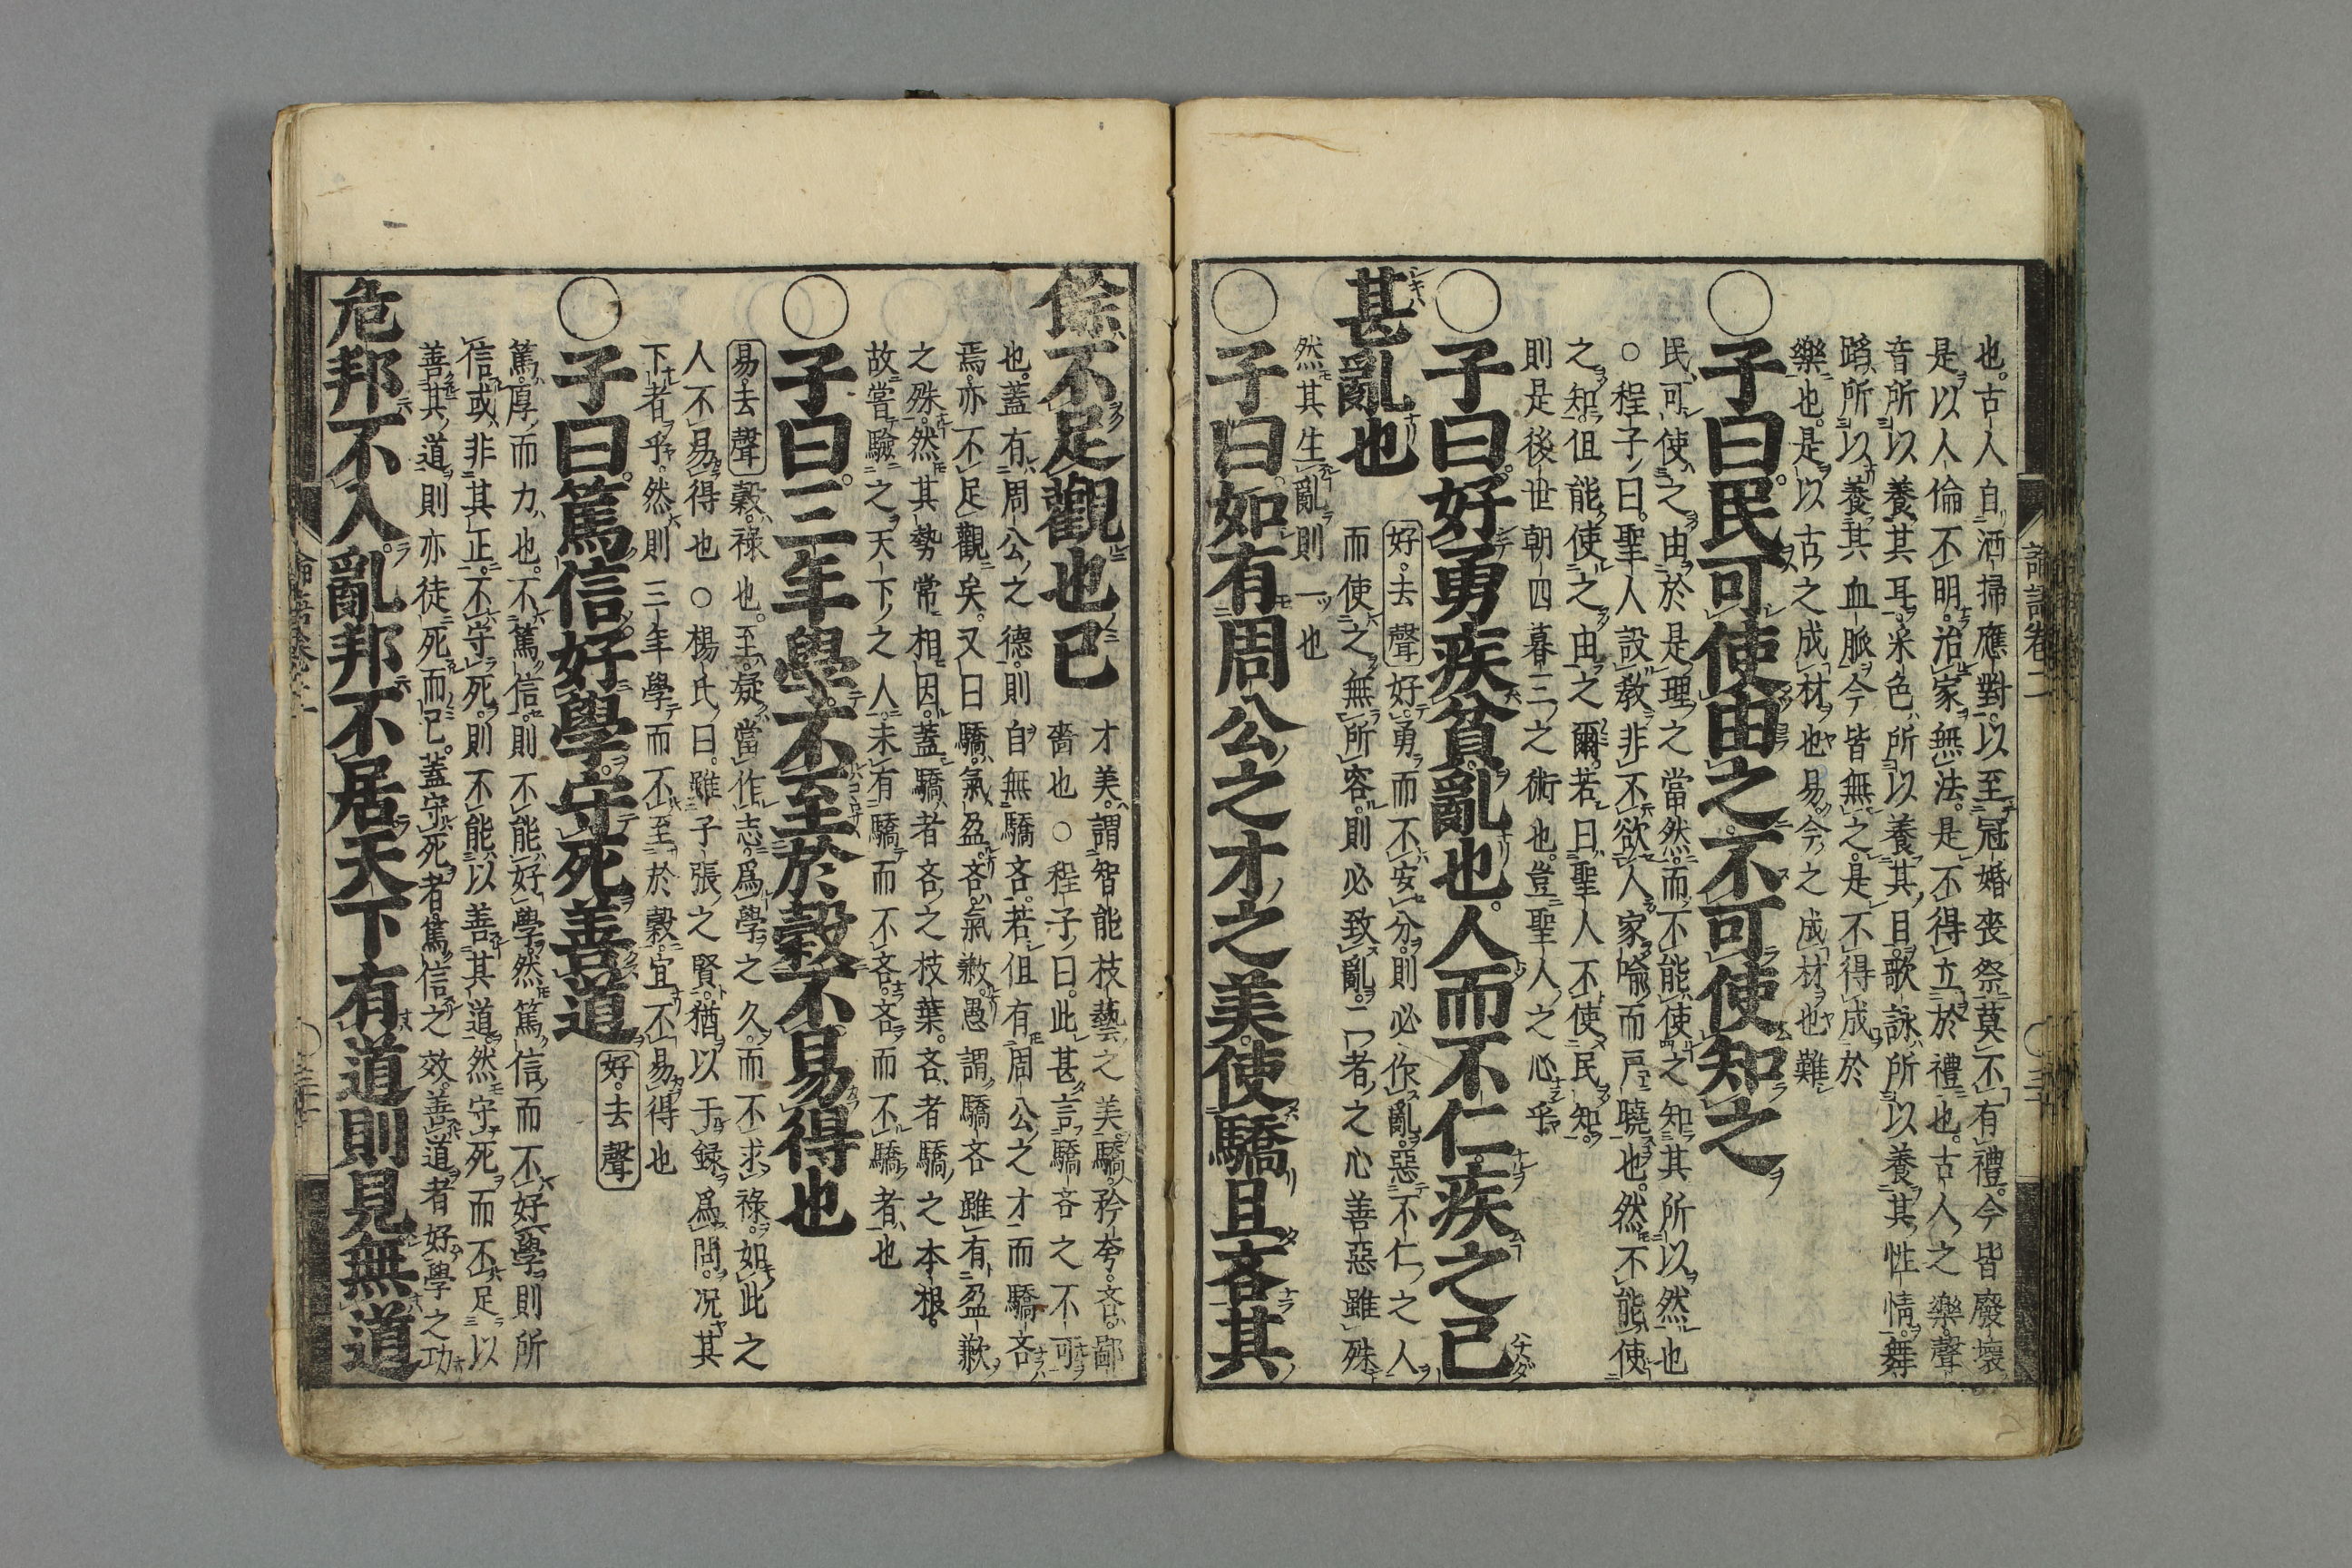 也古人自洒掃應對以至冠婚喪祭莫不有禮今皆廢壞
是以人倫不明治家無法是不得立於禮也古人之樂聲
音所以養其耳采色所以養其目歌詠所以養其性情舞
蹈所以養其血脈今皆無之是不得成於
樂也是以古之成材也易今之成材也難
○子曰民可使由之不可使知之
民可使之由於是理之當然而不能使之知其所以然也
○程子曰聖人設敎非不欲人家喻而戸曉也然不能使
之知但能使之由之爾若曰聖人不使民知
則是後世朝四暮三之術也豈聖人之心乎
○子曰好勇疾貧亂也人而不仁疾之已
甚亂也
好去聲好勇而不安分則必作亂惡不仁之人
而使之無所容則必致亂二者之心善惡雖殊
然其生亂則一也
○子曰如有周公之才之美使驕且吝其
餘不足觀也已
才美謂智能枝藝之美驕矜夸吝鄙
嗇也○程子曰此甚言驕吝之不可
也蓋有周公之德則自無驕吝若但有周公之才而驕吝
焉亦不足觀矣又曰驕氣盈吝氣歉愚謂驕吝雖有盈歉
之殊然其勢常相因蓋驕者吝之枝葉吝者驕之本根
故嘗驗之天下之人未有驕而不吝吝而不驕者也
○子曰三年學不至於穀不易得也
易去聲穀祿也至疑當作志爲學之久而不求祿如此之
人不易得也○楊氏曰雖子張之賢猶以于錄爲問况其
下者乎然則三年學而不至於穀宜不易得也
○子曰篤信好學守死善道
好去聲
篤厚而力也不篤信則不能好學然篤信而不好學則所
信或非其正不守死則不能以善其道然守死而不足以
善其道則亦徒死而已蓋守死者篤信之效善道者好學之功
危邦不入亂邦不居天下有道則見無道
論語卷二